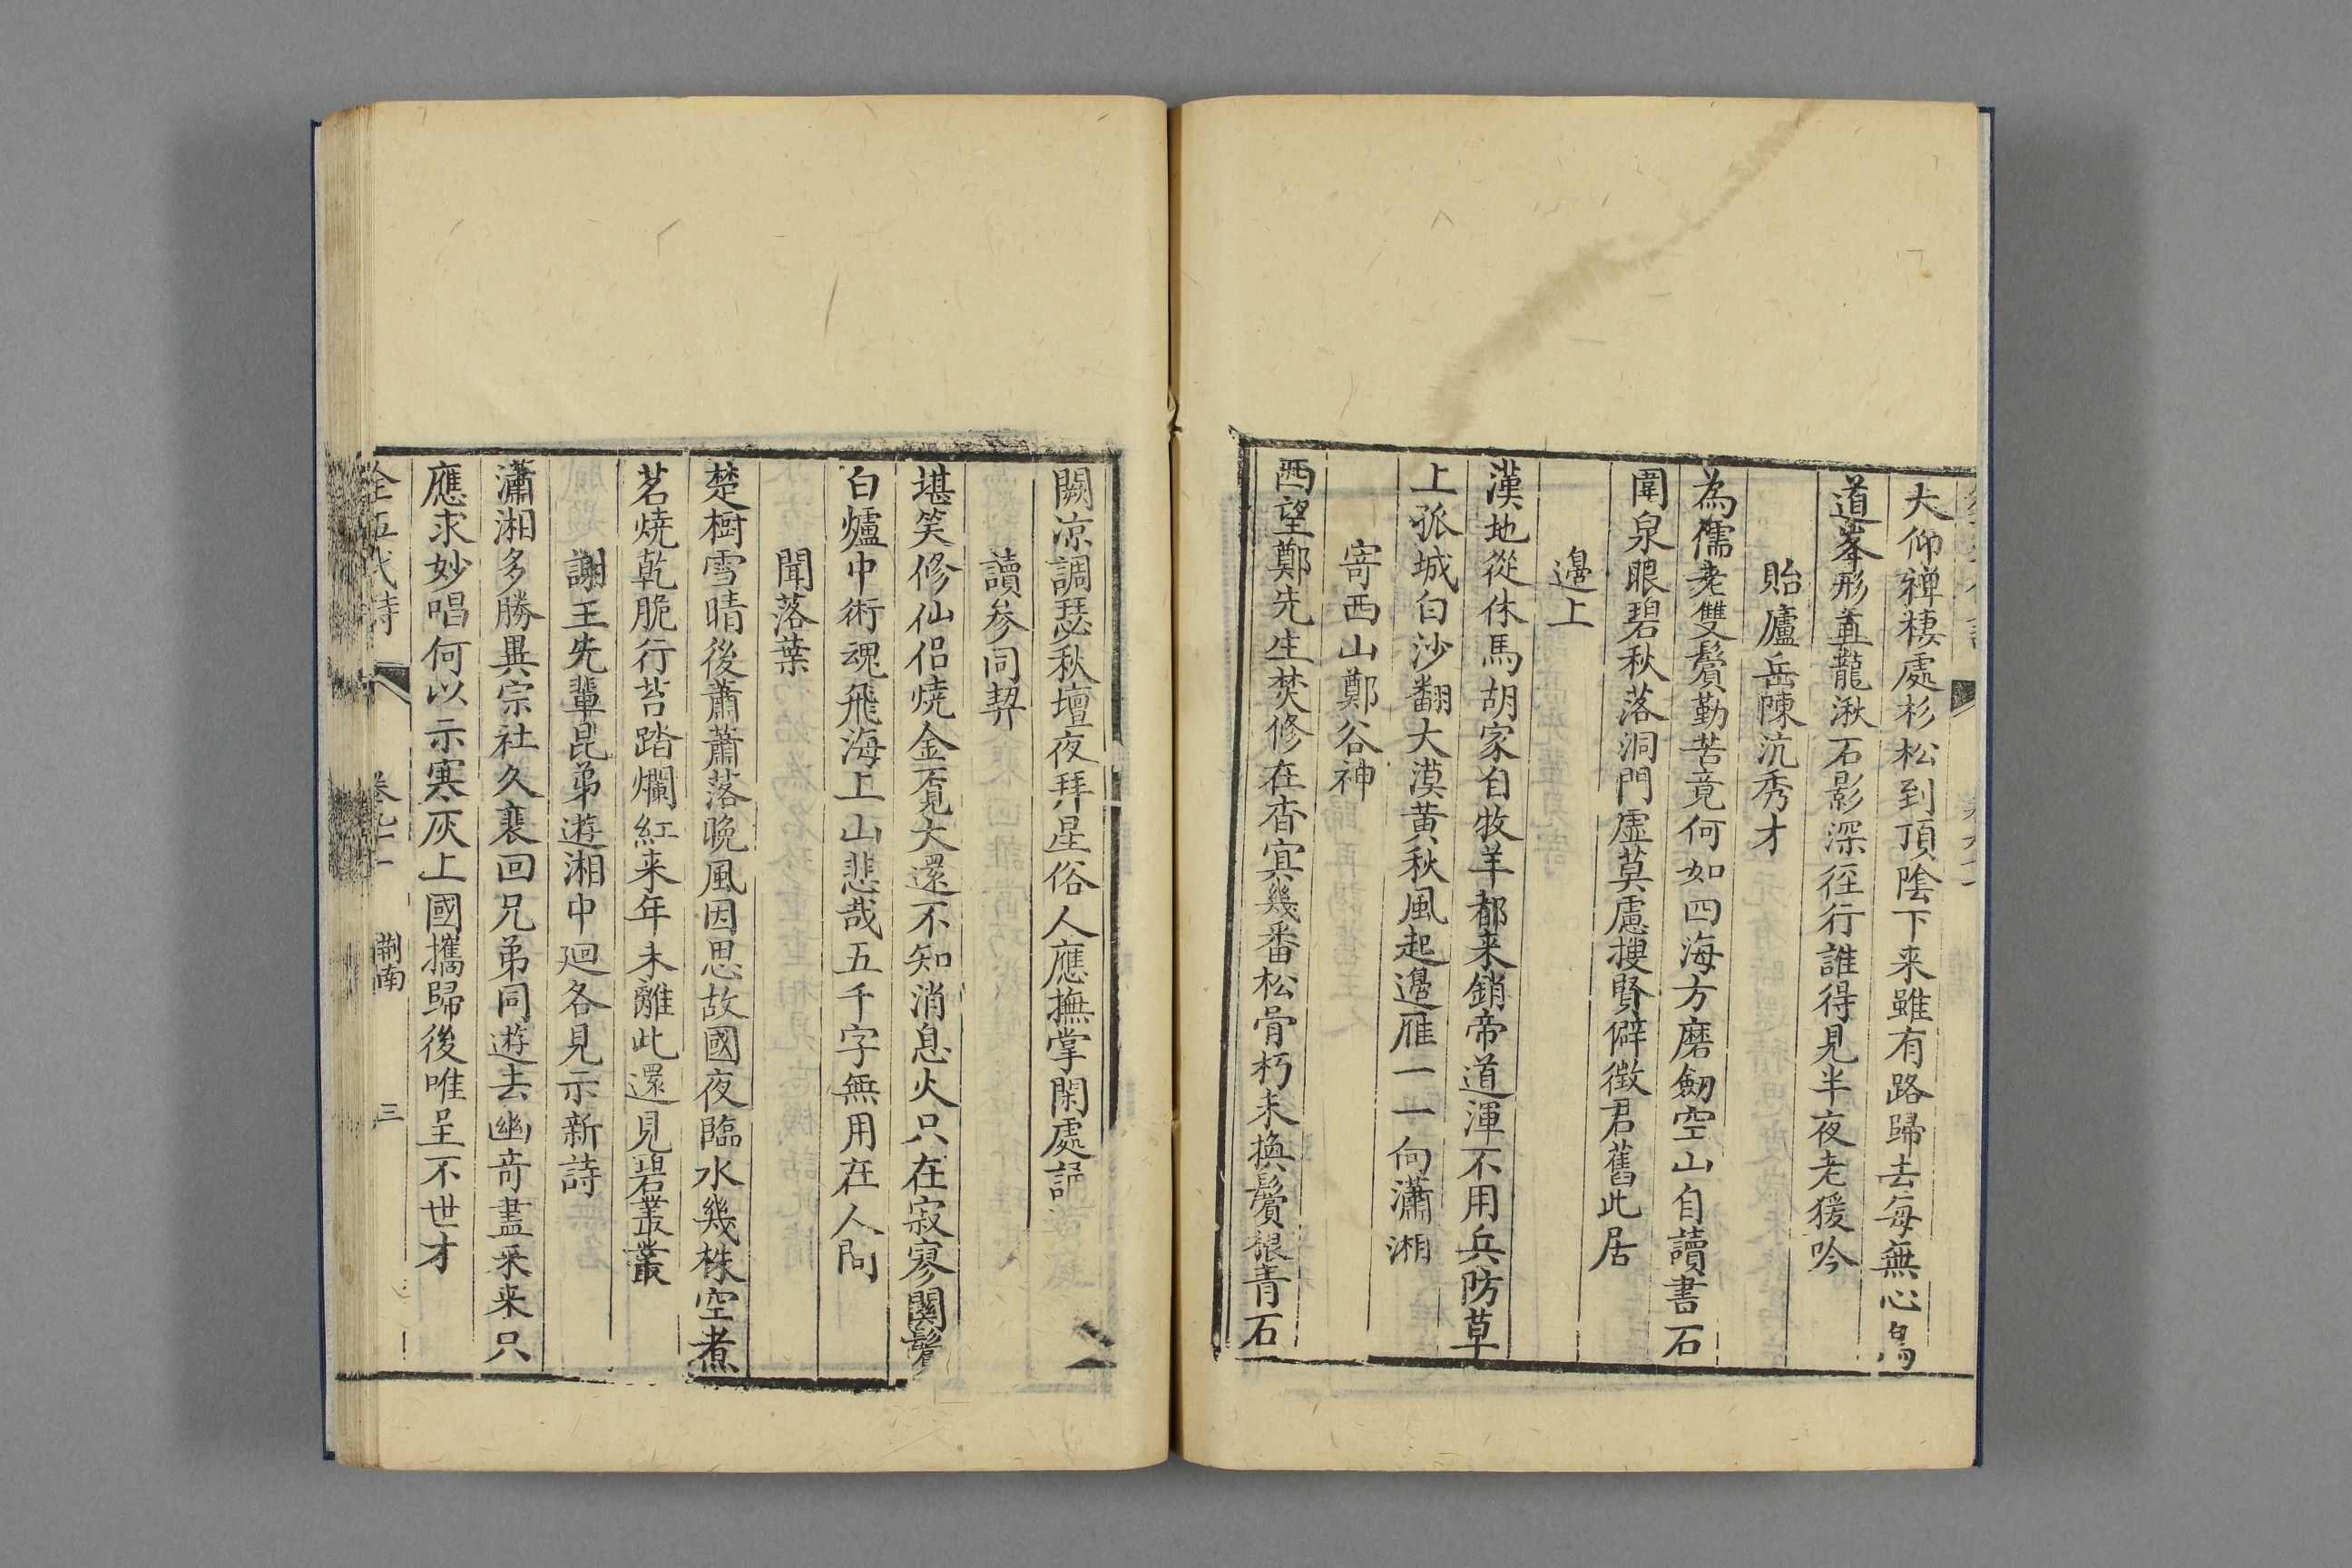 大仰禅棲處杉松到頂陰下来雖有路歸去每無心鳥
道峯形直龍湫石影深徑行誰得見半夜老猨吟
貽廬岳陳沆秀才
為儒老雙鬢勤苦竟何如四海方磨劒空山自讀書石
圍泉眼碧秋落洞門虛莫慮搜賢僻徴君舊此居
邉上
漢地從休馬胡家自牧羊都来銷帝道渾不用兵防草
上孤城白沙翻大漠黄秋風起邉雁一一向瀟湘
寄西山鄭谷神
西望鄭先生焚修在杳冥幾番松骨朽未換鬢根青石
闕凉調瑟秋壇夜拜星俗人應撫掌閑處誦
讀参同契
堪笑修仙侣燒金覔大還不知消息火只在寂寥關鬢
白爐中術魂飛海上山悲哉五千字無用在人間
聞落葉
楚樹雪晴後蕭蕭落晚風因思故國夜臨水幾株空煮
茗燒乾脆行苔踏爛紅来年未離此還見碧叢叢
謝王先輩昆弟遊湘中廻各見示新詩
瀟湘多勝異宗社久裴回兄弟同遊去幽奇盡采来只
應求妙唱何以示寒灰上國攜歸後唯呈不世才
全五代詩 卷九十一 荆南 三